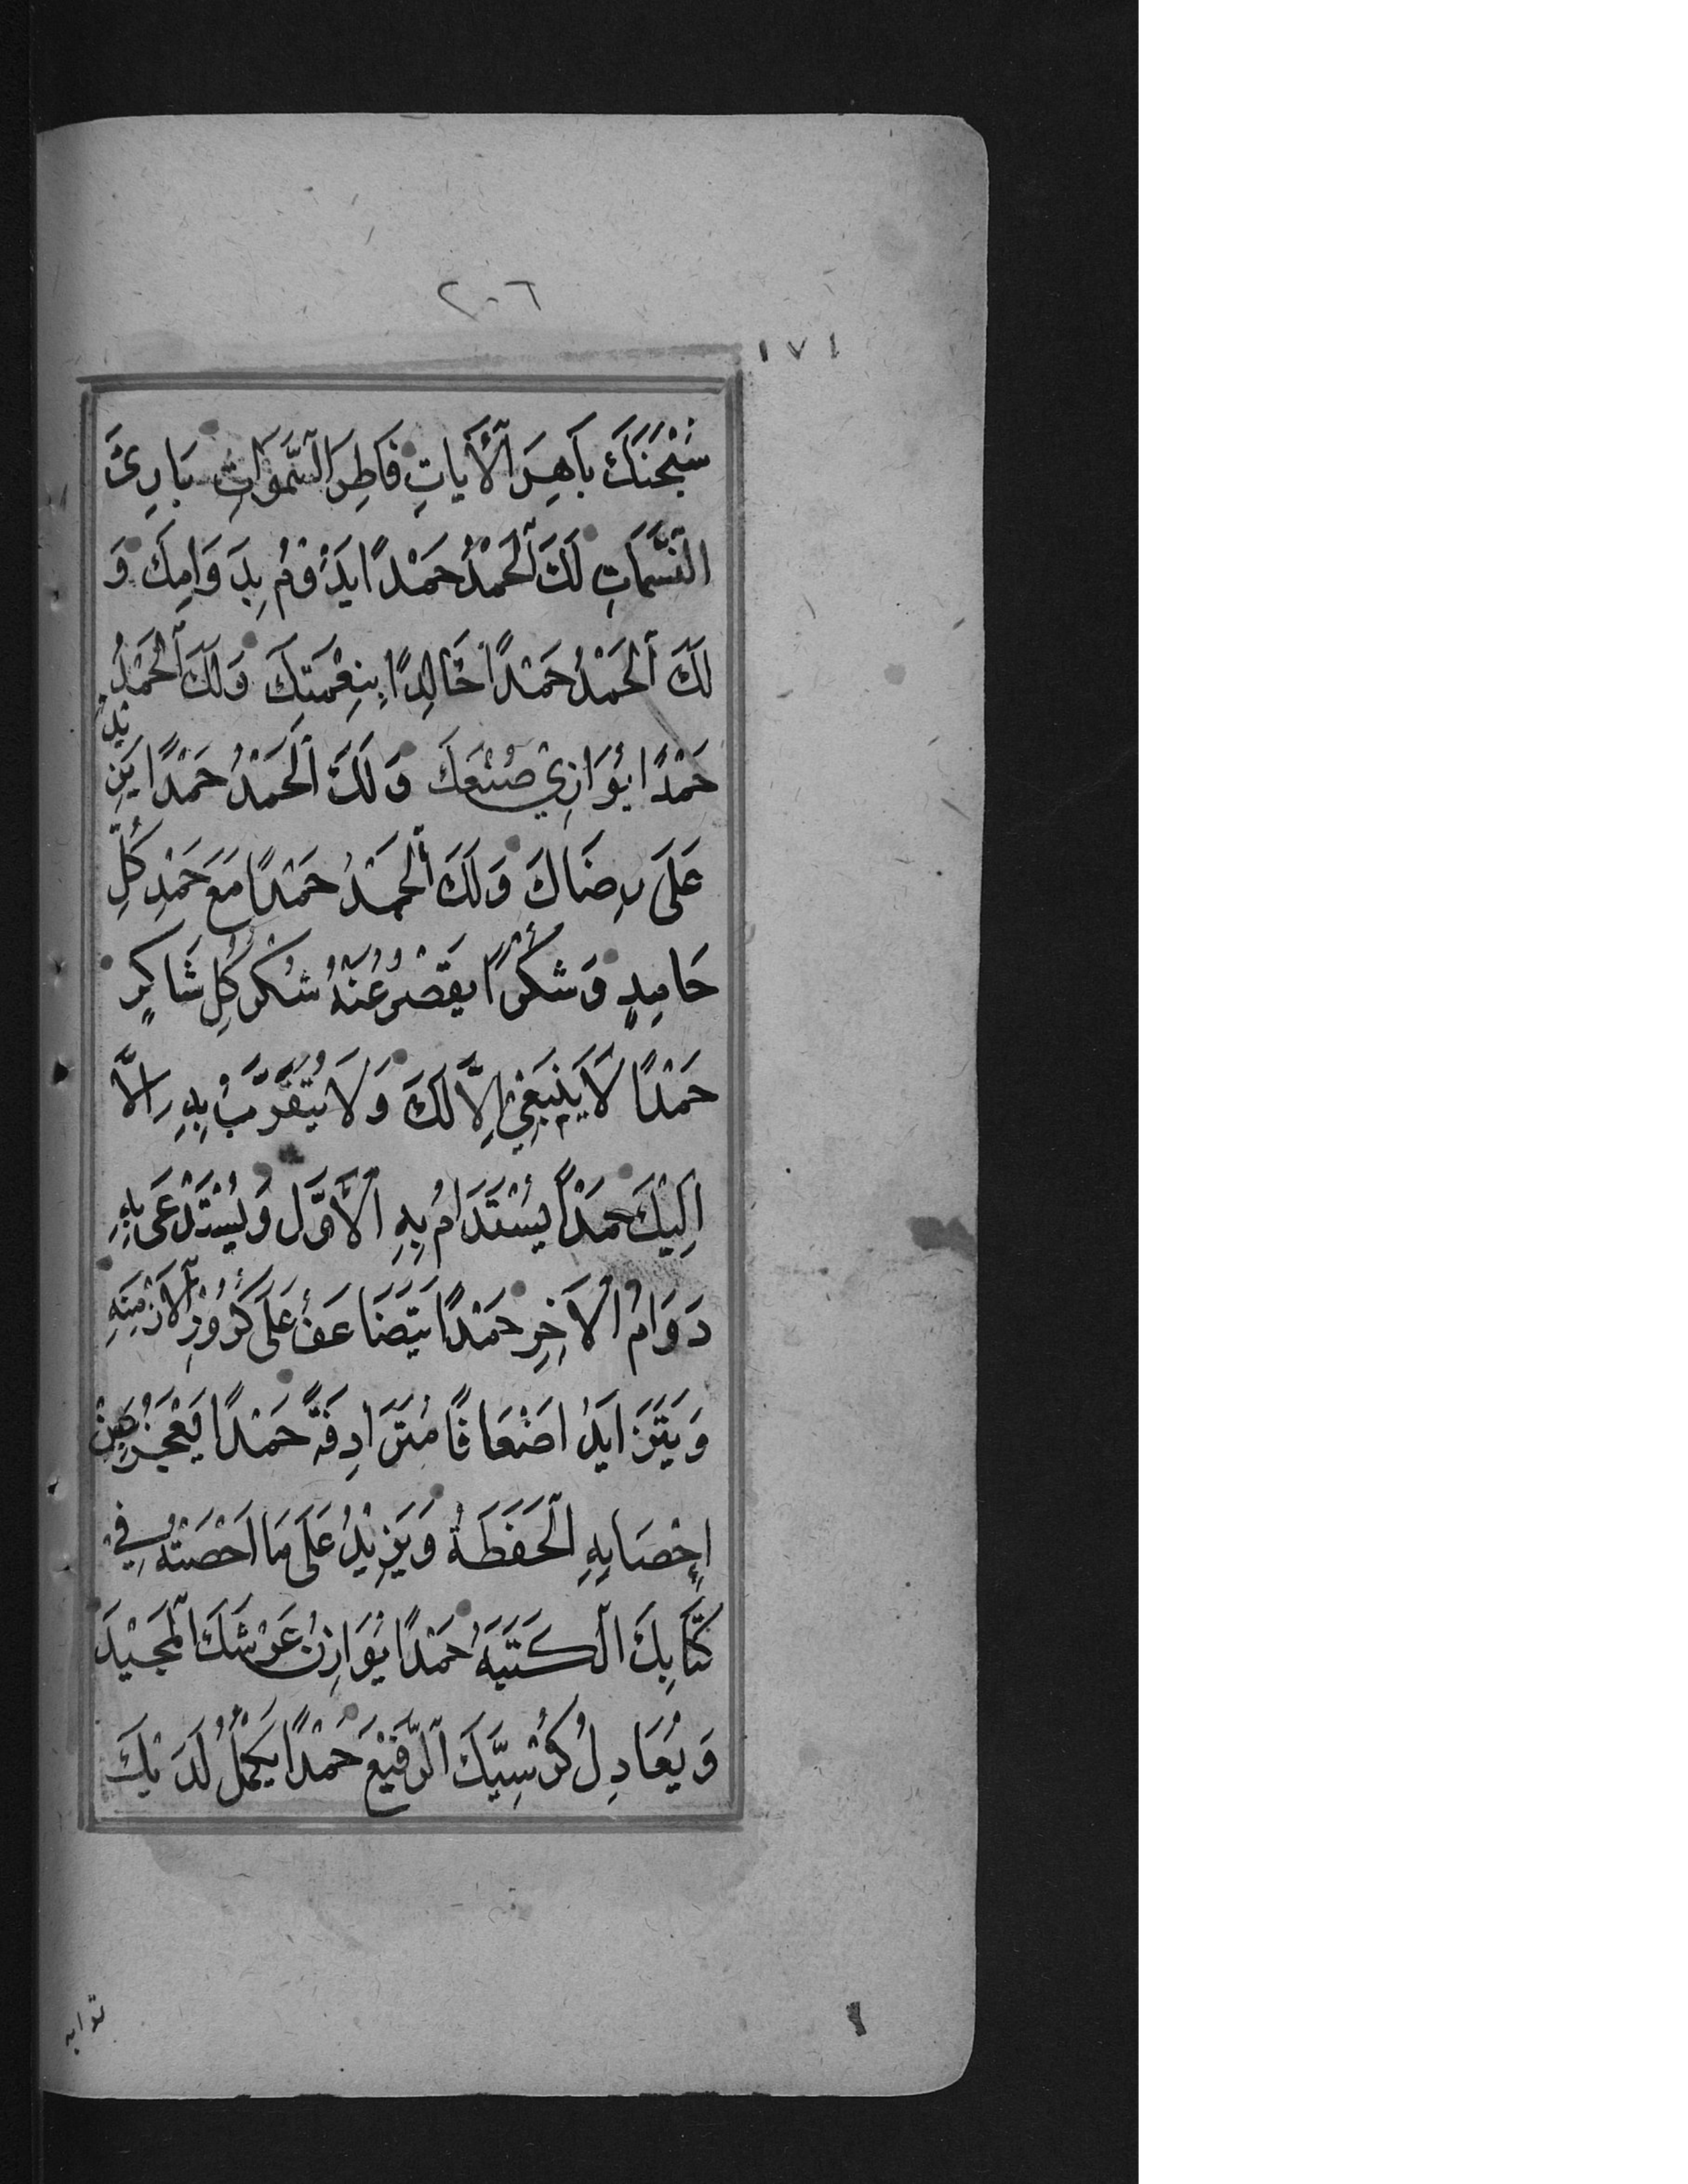 ٢٠٦
١٧١
سُبْحٰنَكَ بَاهِرَ الْآيَاتِ فَاطِرَ السَّمَوَاتِ بَارِئَ
النَّسَمَاتِ لَكَ الْحَمْدُ حَمْدًا يَدُوْمُ بِدَوَامِكَ وَ
لَكَ الْحَمْدُ حَمْدًا خَالِدًا بِنِعْمَتِكَ وَلَكَ الْحَمْدُ
حَمْدًا يُوَازِيْ صُنْعَكَ وَلَكَ الْحَمْدُ حَمْدًا يَزِيْدُ
عَلَى رِضَاكَ وَلَكَ الْحَمْدُ حَمْدًا مَعَ حَمْدِ كُلِّ
حَامِدٍ وَشُكْرًا يَقْصُرُ عَنْهُ شُكْرُ كُلِّ شَاكِرٍ
حَمْدًا لَا يَنْبَغِيْ إِلَّا لَكَ وَلَا يُتَقَرَّبُ بِهِ إِلَّا
اِلَيْكَ حَمْدًا يُسْتَدَامُ بِهِ الْأَوَّلُ وَيُسْتَدْعَى بِهِ
دَوَامُ الْآخِرِ حَمْدًا يَتَضَاعَفُ عَلَى كُرُوْرِ الْأَزْمِنَةِ
وَيَتَزَايَدُ اَضْعَافًا مُتَرَادِفَةً حَمْدًا يَعْجِزُ عَنْ
اِحْصَايِهِ الْحَفَظَةُ وَيَزِيْدُ عَلَى مَا اَحْصَتْهُ فِيْ
كِتَابِكَ الْكَتَبَةُ حَمْدًا يُوَازِنُ عَرْشَكَ الْمَجِيْدَ
وَيُعَادِلُ كُرْسِيَّكَ الرَّفِيْعَ حَمْدًا يَكْمُلُ لَدَيْكَ
ثوابه